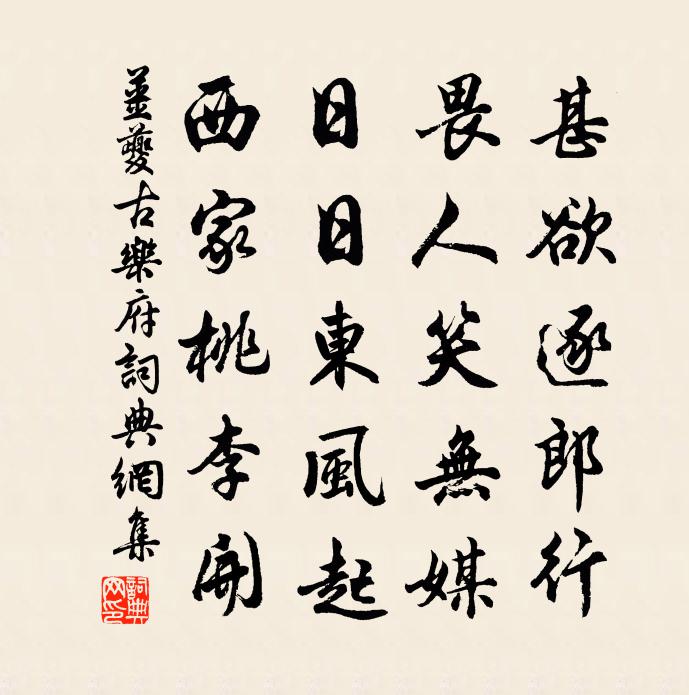 甚欲逐郎行
畏人笑無媒
日日東風起
西家桃李開
姜夔古樂府詞典網集
詞典网印